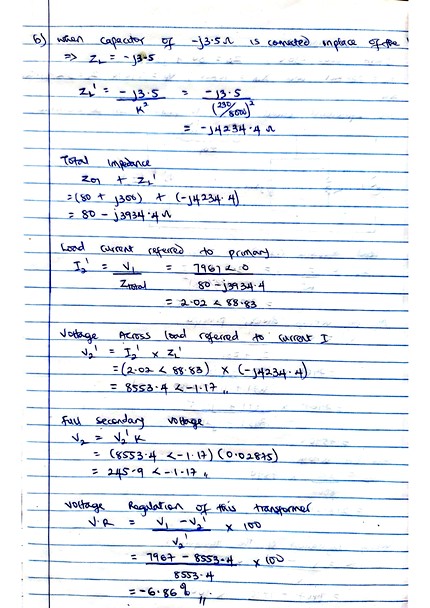 b) when capacitor of -j3.5Ω is connected inplace of the
=> ZL = -j3.5
ZL' = -j3.5 / K² = -j3.5 / (230/8000)² 
= -j4234.4 Ω
Total impedance
Z01 + ZL'
=(80 + j300) + (-j4234.4)
= 80 - j3934.4 Ω
Load current referred to primary
I2' = V1 / Ztotal = 7967∠0 / 80 - j3934.4
= 2.02∠88.83
Voltage Across load referred to current I
V2' = I2' × ZL'
=(2.02∠88.83) × (-j4234.4)
= 8553.4∠-1.17 "
Full secondary voltage
V2 = V2' K
= (8553.4∠-1.17)(0.02875)
= 245.9∠-1.17 "
Voltage Regulation of this transformer
V.R = V1 - V2' / V2' × 100
= 7967 - 8553.4 / 8553.4 × 100
= -6.86% "